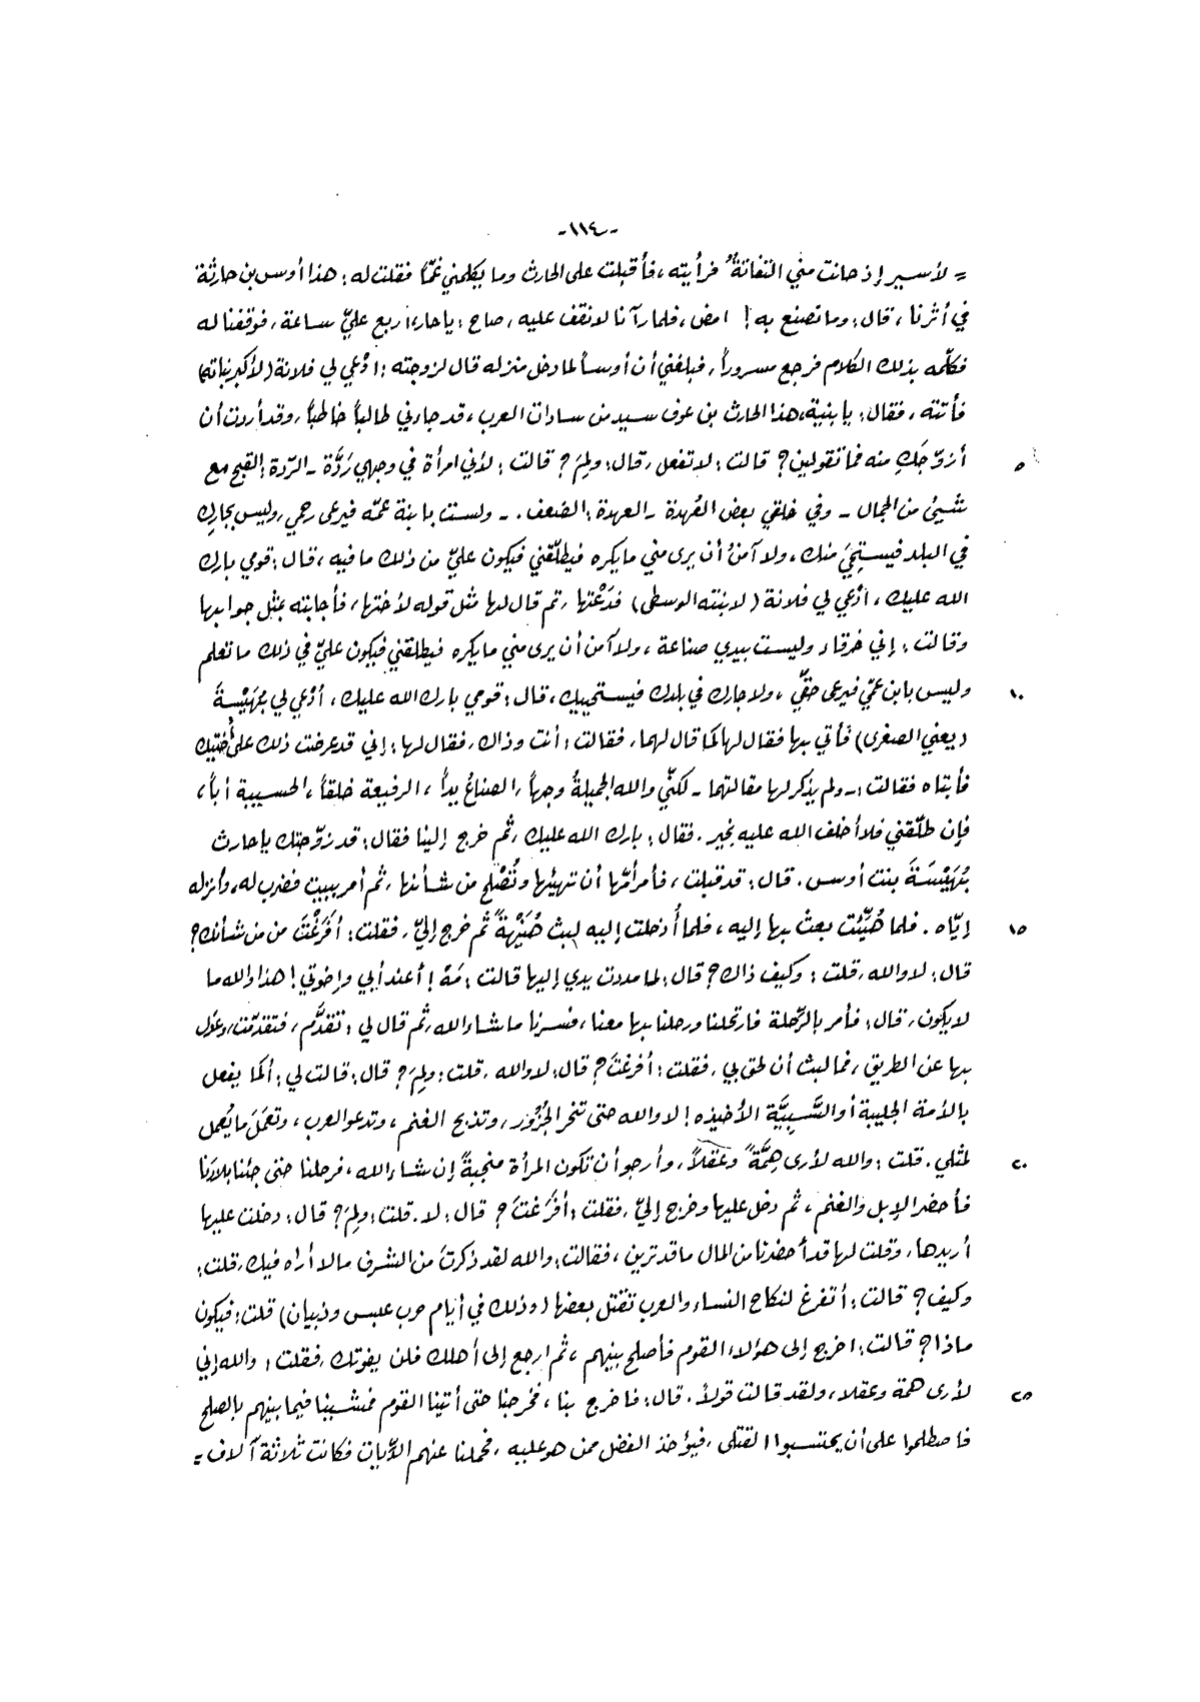 -١١٤-
= لأسير إذ حانت مني التفاتةٌ فرأيته، فأقبلت على الحارث وما يكلمني غمّاً فقلت له: هذا أوس بن حارثة
في أثرنا، قال: وما تصنع به! امض، فلما رآنا لا نقف عليه، صاح: يا حار، اربع عليّ ساعة، فوقفنا له
فكلّمه بذلك الكلام فرجع مسروراً، فبلغني أن أوساً لما دخل منزله قال لزوجته: ادْعي لي فلانة (لأكبر بناته)
فأتته، فقال: يا بنية، هذا الحارث بن عوف سيد من سادات العرب، قد جاءني طالباً خاطباً، وقد أردت أن
أزوّجَكِ منه فما تقولين؟ قالت: لا تفعل، قال: ولِمَ؟ قالت: لأني امرأة في وجهي رَدَّة - الرّدة: القبح مع
شيئ من الجمال - وفي خلقي بعض العُهدة - العهدة: الضعف. - ولست بابنة عمّه فيرعى رحمي، وليس بجارِك
في البلد فيستحيَ منك، ولا آمنُ أن يرى مني ما يكره فيطلّقني فيكون عليّ من ذلك ما فيه، قال: قومي بارك
الله عليك، ادْعي لي فلانة (لابنته الوسطى) فدَعْتها، ثم قال لها مثل قوله لأختها، فأجابته بمثل جوابها
وقالت: إني خرقاء وليست بيدي صناعة، ولا آمن أن يرى مني ما يكره فيطلقني فيكون عليّ في ذلك ما تعلم
وليس بابن عمّي فيرعى حقّي، ولا جارك في بلدك فيستحييك، قال: قومي بارك الله عليك، أدْعي لي بُهَيْسةَ
(يعني الصغرى) فأتي بها فقال لها كما قال لهما، فقالت: أنت وذاك، فقال لها: إني قد عرضت ذلك على أُختيك
فأبتاه فقالت: - ولم يذكر لها مقالتهما - لكنّي والله الجميلةُ وجهاً، الصناعُ يداً، الرفيعة خلقاً، الحسيبة أباً،
فإن طلّقني فلا أخلف الله عليه بخير. فقال: بارك الله عليك، ثم خرج إلينا فقال: قد زوّجتك يا حارث
بُهَيْسَةَ بنت أوس. قال: قد قبلت، فأمر أمّها أن تهيئها وتُصْلح من شأنها، ثم أمر ببيت فضرب له، وأنزله
إيّاه. فلما هُيِّئت بعث بها إليه، فلما أُدخلت إليه لبث هُنَيْهةً ثم خرج إليّ، فقلت: أفَرَغْتَ من من شأنك؟
قال: لا والله، قلت: وكيف ذاك؟ قال: لما مددت يدي إليها قالت: مَهْ! أعند أبي وإخوتي! هذا والله ما
لا يكون، قال: فأمر بالرّحلة فارتحلنا ورحلنا بها معنا، فسرنا ما شاء الله، ثم قال لي: تَقَدَّم، فتقدّمت، وعدل
بها عن الطريق، فما لبث أن لحق بي، فقلت: أفرغتَ؟ قال: لا والله، قلت: ولِمَ؟ قال: قالت لي: أكما يفعل
بالأمة الجليبة أو السَّبِيَّة الأخيذه! لا والله حتى تنحر الجُزُر، وتذبح الغنم، وتدعو العرب، وتعمَلَ ما يُعمل
لمثلي. قلت: والله لأرى هِمَّةً وعَقلاً، وأرجو أن تكون المرأة منجبةً إن شاء الله، فرحلنا حتى جئنا بلادَنا
فأحضر الإبل والغنم، ثم دخل عليها وخرج إليّ، فقلت: أفَرَغتَ؟ قال: لا. قلت: ولِمَ؟ قال: دخلت عليها
أريدها، وقلت لها قد أحضرنا من المال ما قد ترين، فقالت: والله لقد ذكرتَ من الشرف ما لا أراه فيك، قلت:
وكيف؟ قالت: أتفرغ لنكاح النساء والعرب تقتل بعضها (وذلك في أيام حرب عبس وذبيان) قلت: فيكون
ماذا؟ قالت: اخرج إلى هؤلاء القوم فأصلح بينهم، ثم ارجع إلى أهلك فلن يفوتك، فقلت: والله إني
لأرى همة وعقلا، ولقد قالت قولاً. قال: فاخرج بنا، فخرجنا حتى أتينا القوم فمشينا فيما بينهم بالصلح
فاصطلحوا على أن يحتسبوا القتلى، فيؤخذ الفضل ممن هو عليه، فحملنا عنهم الدِّيات فكانت ثلاثة آلاف =
٥
١٠
١٥
٢٠
٢٥